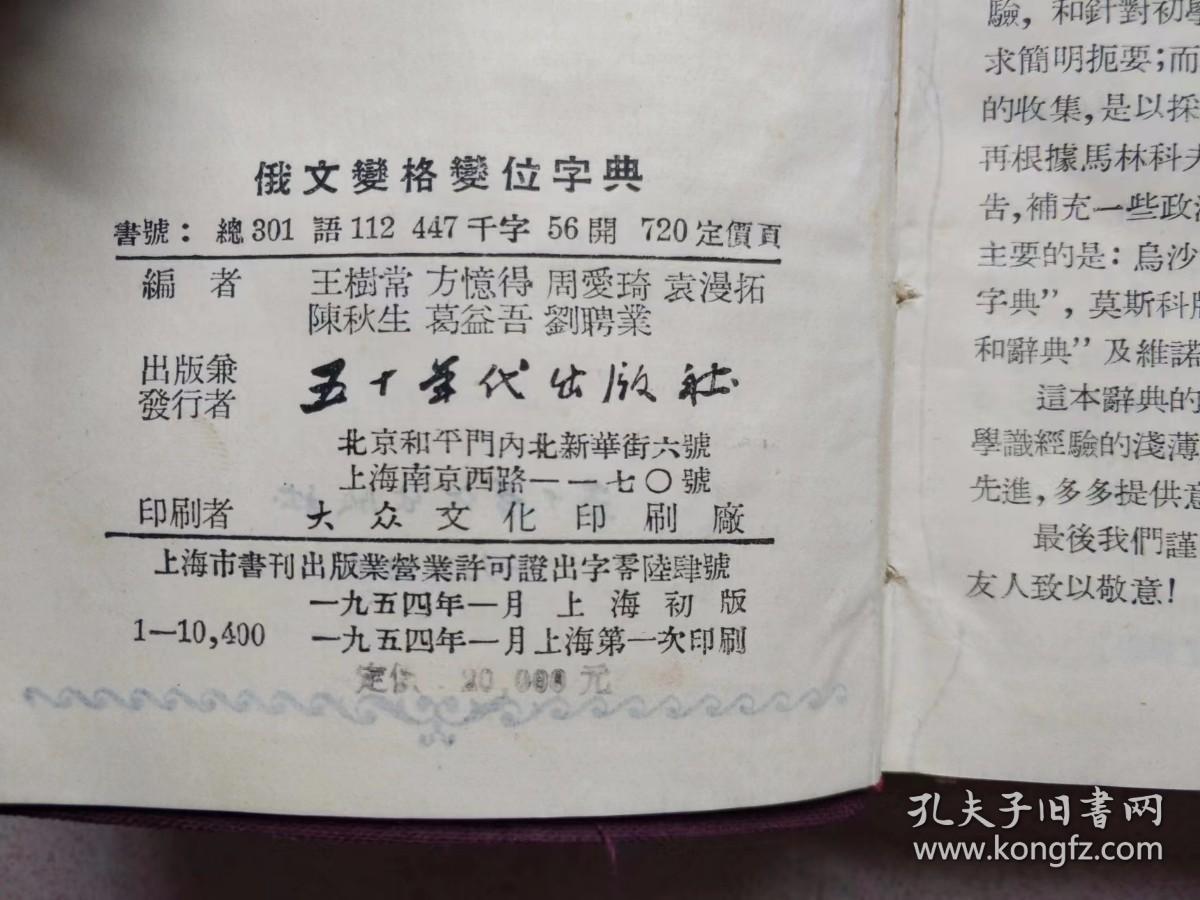 俄文變格變位字典
書號：總301 語112 447千字 56開 720定價頁
編者 王樹常 方憶得 周愛琦 袁漫拓
陳秋生 葛益吾 劉聘業
出版兼
發行者 五十年代出版社
北京和平門內北新華街六號
上海南京西路一一七〇號
印刷者 大众文化印刷廠
上海市書刊出版業營業許可證出字零陸肆號
一九五四年一月上海初版
1—10,400 一九五四年一月上海第一次印刷
定價 20,000元
驗，和針對初學
求簡明扼要；而
的收集，是以採
再根據馬林科夫
告，補充一些政治
主要的是：烏沙
字典”，莫斯科版
和辭典”及維諾
這本辭典的
學識經驗的淺薄
先進，多多提供意
最後我們謹
友人致以敬意！
孔夫子旧书网
www.kongfz.com